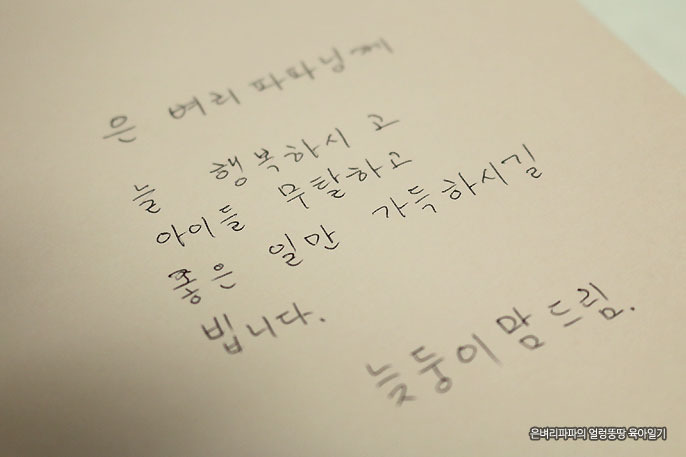 은벼리파파님께
늘 행복하시고
아이들 무탈하고
좋은 일만 가득하시길
빕니다.
늦둥이맘 드림.
은벼리파파의 얼렁뚱땅 육아일기